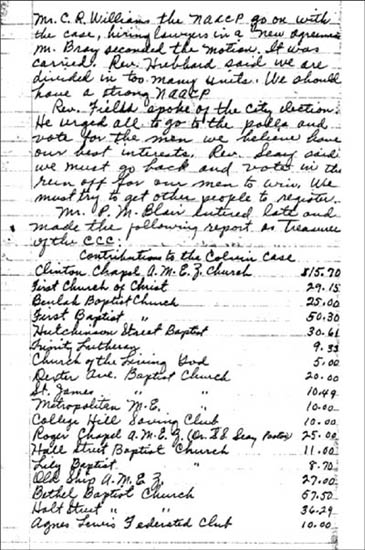 Mr. C. R. Williams the NAACP go on with
the case, hiring lawyers in a new agreemen
M. Bray seconded the motion. It was
carried. Rev. Hubbard said we are
divided in too many units. We should
have a strong NAACP
Rev. Fields spoke of the city election.
He urged all to go to the polls and
vote for the men we believe have
our best interests. Rev. Seay said
we must go back and vote in the
run off for our men to win. We
must try to get other people to register.
Mr. P. M. Blair entered late and
made the following report as treasurer
of the CCC:
Contributions to the Colvin Case
Clinton Chapel A.M.E.Z. Church $15.70
First Church of Christ 29.15
Beulah Baptist Church 25.00
First Baptist " 50.30
Hutchinson Street Baptist 30.61
Trinity Lutheran 9.33
Church of the Living God 5.00
Dexter Ave. Baptist Church 20.00
St. James " " 10.49
Metropolitan M.E. " 10.00
College Hill Saving Club 10.00
Roger Chapel A.M.E.Z. (Dr. S S Seay Pastor) 25.00
Hall Street Baptist Church 11.00
Lily Baptist " 8.70
Old Ship A.M.E.Z. 27.00
Bethel Baptist Church 57.50
Holt Street " " 36.29
Agnes Lewis Federated Club 10.00